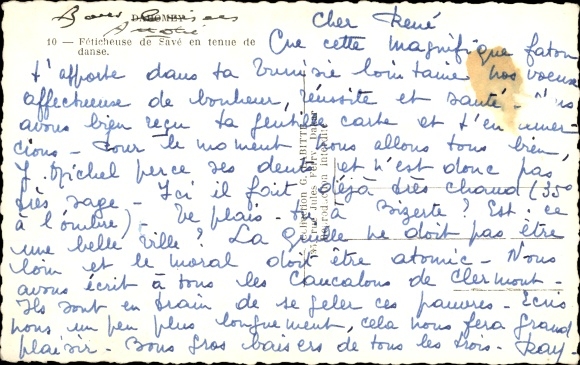 DAHOMEY
10 — Féticheuse de Savé en tenue de
danse.
Cher René
Que cette magnifique
t'apporte dans ta Tunisie lointaine nos voeux
affectueux de bonheur, réussite et santé - Nous
avons bien reçu ta gentille carte et t'en remer-
cions - Pour le moment nous allons tous bien,
J. Michel perce ses dents et n'est donc pas
très sage - Ici il fait déjà très chaud (35°
à l'ombre). Te plais-tu à Bizerte? Est-ce
une belle ville? La Quille ne doit pas être
loin et le moral doit être atomic - Nous
avons écrit à tous les de Clermont -
Ils sont en train de se geler ces pauvres - Ecris
nous un peu plus longuement, cela nous fera grand
plaisir - Bons gros baisers de tous les trois - Ray -
Collection G.
Rue Jules Ferry, Dakar
Reproduction interdite